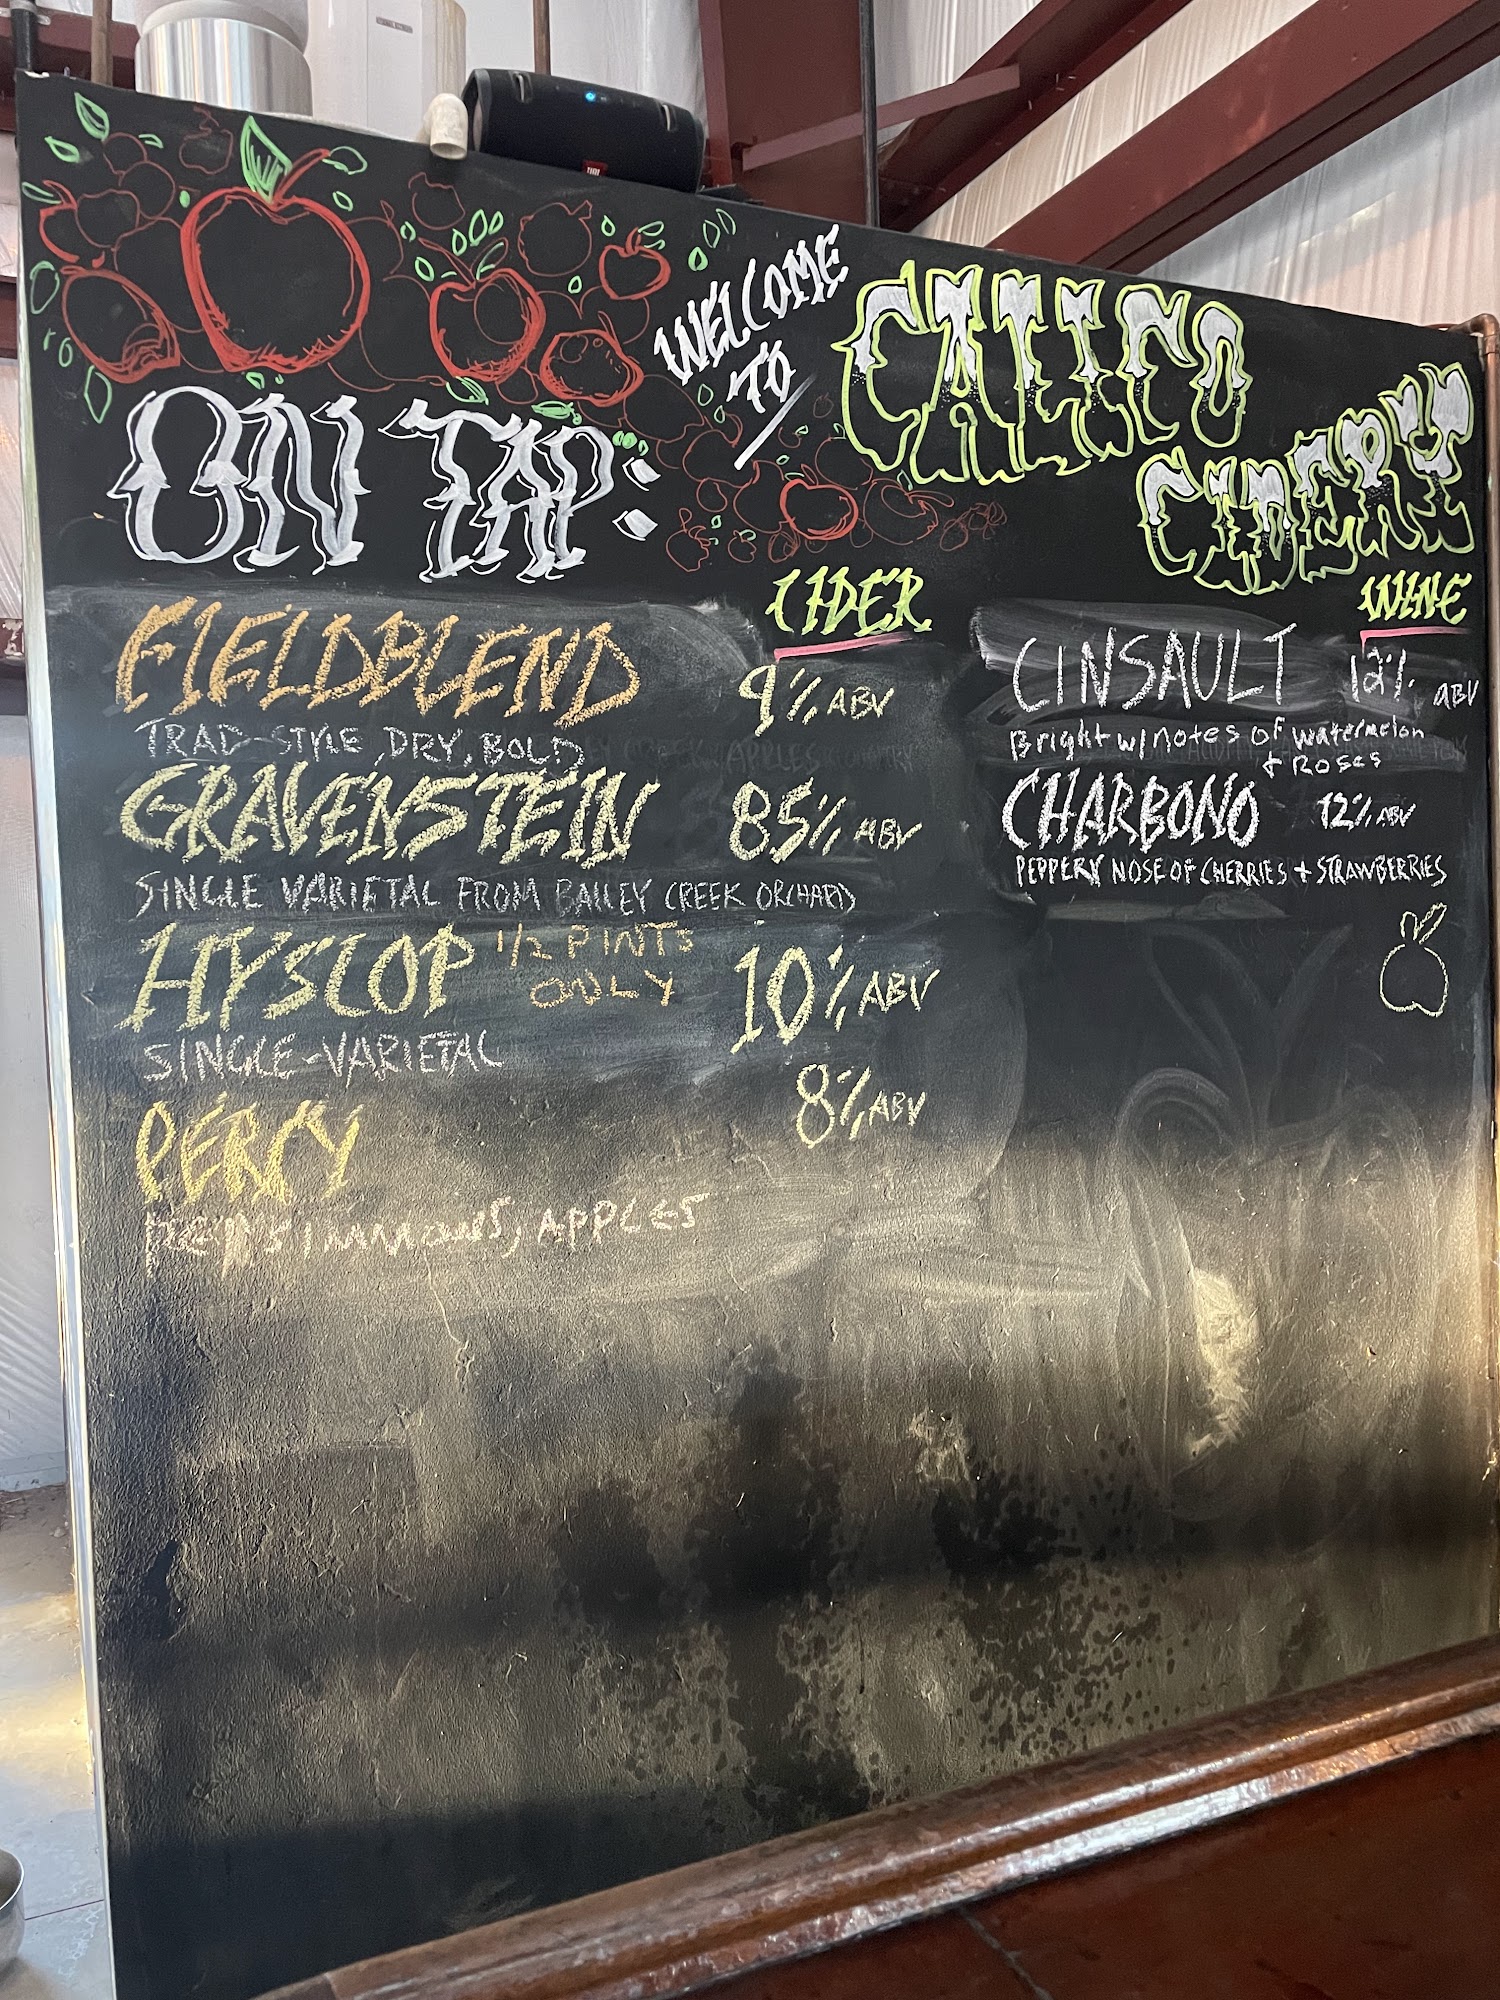 WELCOME
TO
CALICO
CIDERY
ON TAP:
CIDER
FIELDBLEND 9% ABV
TRAD-STYLE, DRY, BOLD
GRAVENSTEIN 85% ABV
SINGLE VARIETAL FROM BAILEY CREEK ORCHARD
HYSLOP 1/2 PINTS
ONLY 10% ABV
SINGLE-VARIETAL
PERRY 8% ABV
APPLES
WINE
CINSAULT 12% ABV
Bright w/ notes of watermelon
+ Roses
CHARBONO 12% ABV
PEPPERY NOSE OF CHERRIES + STRAWBERRIES
JBL